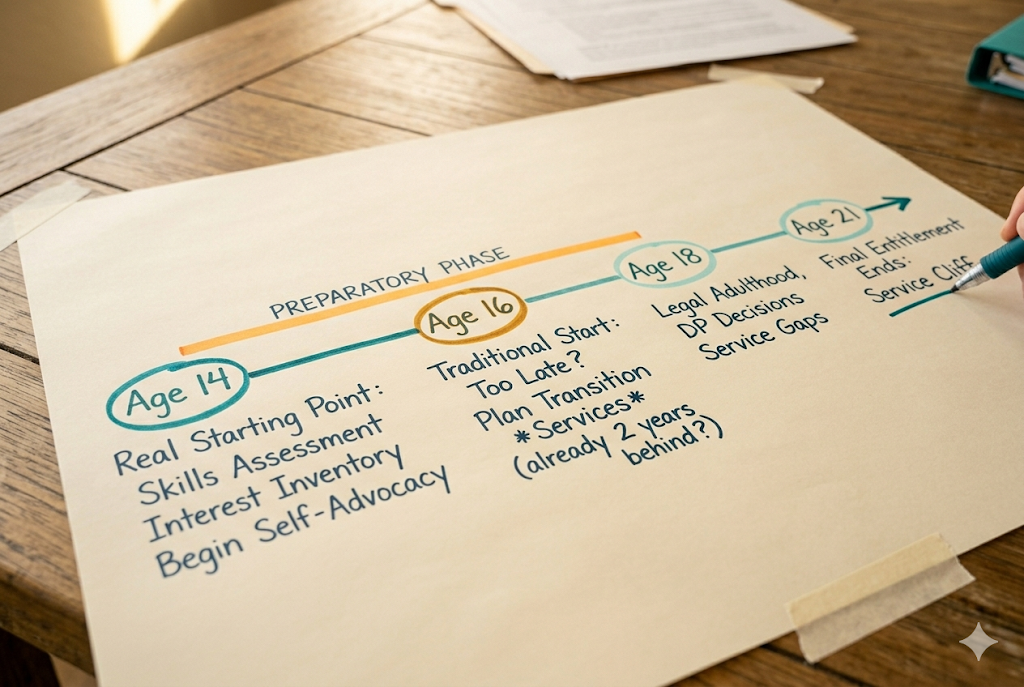 PREPARATORY PHASE
Age 14
Real Starting Point:
Skills Assessment
Interest Inventory
Begin Self-Advocacy
Age 16
Traditional Start:
Too Late?
Plan Transition
*Services*
(already 2 years
behind?)
Age 18
Legal Adulthood,
DP Decisions
Service Gaps
Age 21
Final Entitlement
Ends:
Service Cliff